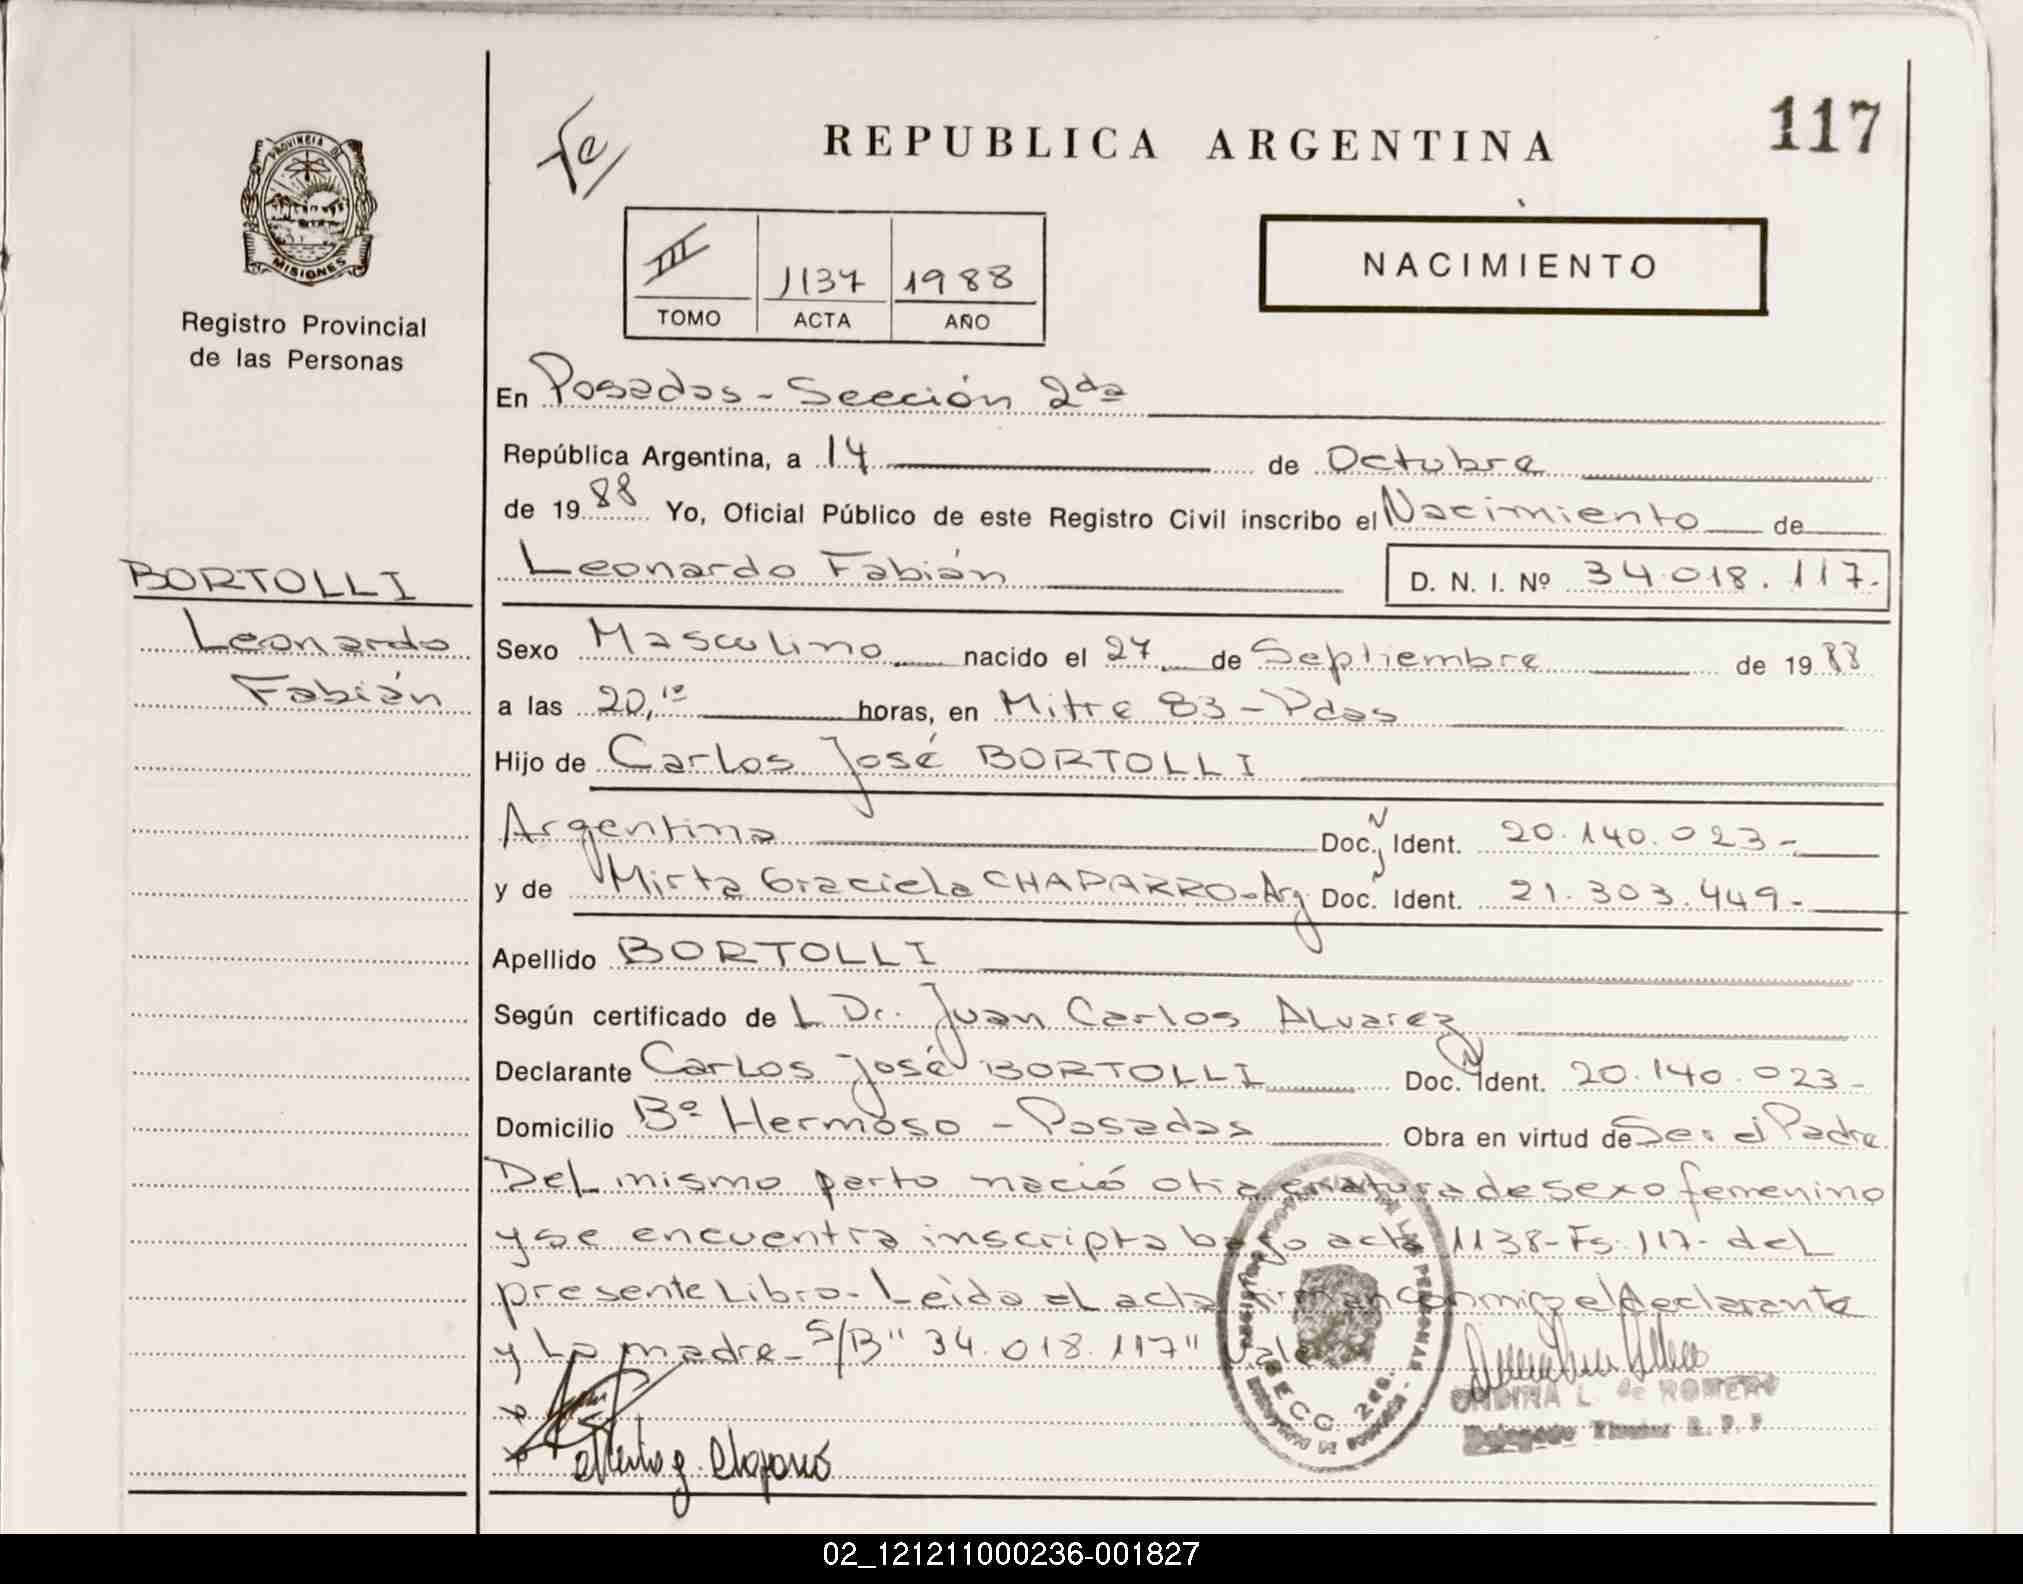 117
REPUBLICA ARGENTINA
PROVINCIA DE
MISIONES
Registro Provincial
de las Personas
III 1137 1988
TOMO ACTA AÑO
NACIMIENTO
En Posadas - Sección 2da
República Argentina, a 14 de Octubre
de 1988 Yo, Oficial Público de este Registro Civil inscribo el Nacimiento de
Leonardo Fabián D. N. I. Nº 34.018.117.
BORTOLLI
Leonardo
Fabián
Sexo Masculino nacido el 27 de Septiembre de 1988
a las 20,10 horas, en Mitre 83 - Pdas
Hijo de Carlos José BORTOLLI
Argentina Doc. N Ident. 20.140.023-
y de Mirta Graciela CHAPARRO-Arg Doc. Ident. 21.303.449-
Apellido BORTOLLI
Según certificado de L Dr. Juan Carlos Alvarez
Declarante Carlos José BORTOLLI Doc. N Ident. 20.140.023-
Domicilio Bº Hermoso - Posadas Obra en virtud de Ser el Padre
Del mismo parto nació otra criatura de sexo femenino
y se encuentra inscripta bajo acta 1138-Fs. 117- del
presente Libro- Leída el acta firman conmigo el declarante
y La madre- S/B "34.018.117" Vale
SECC. 2da.
L. de ROMERO
02_121211000236-001827